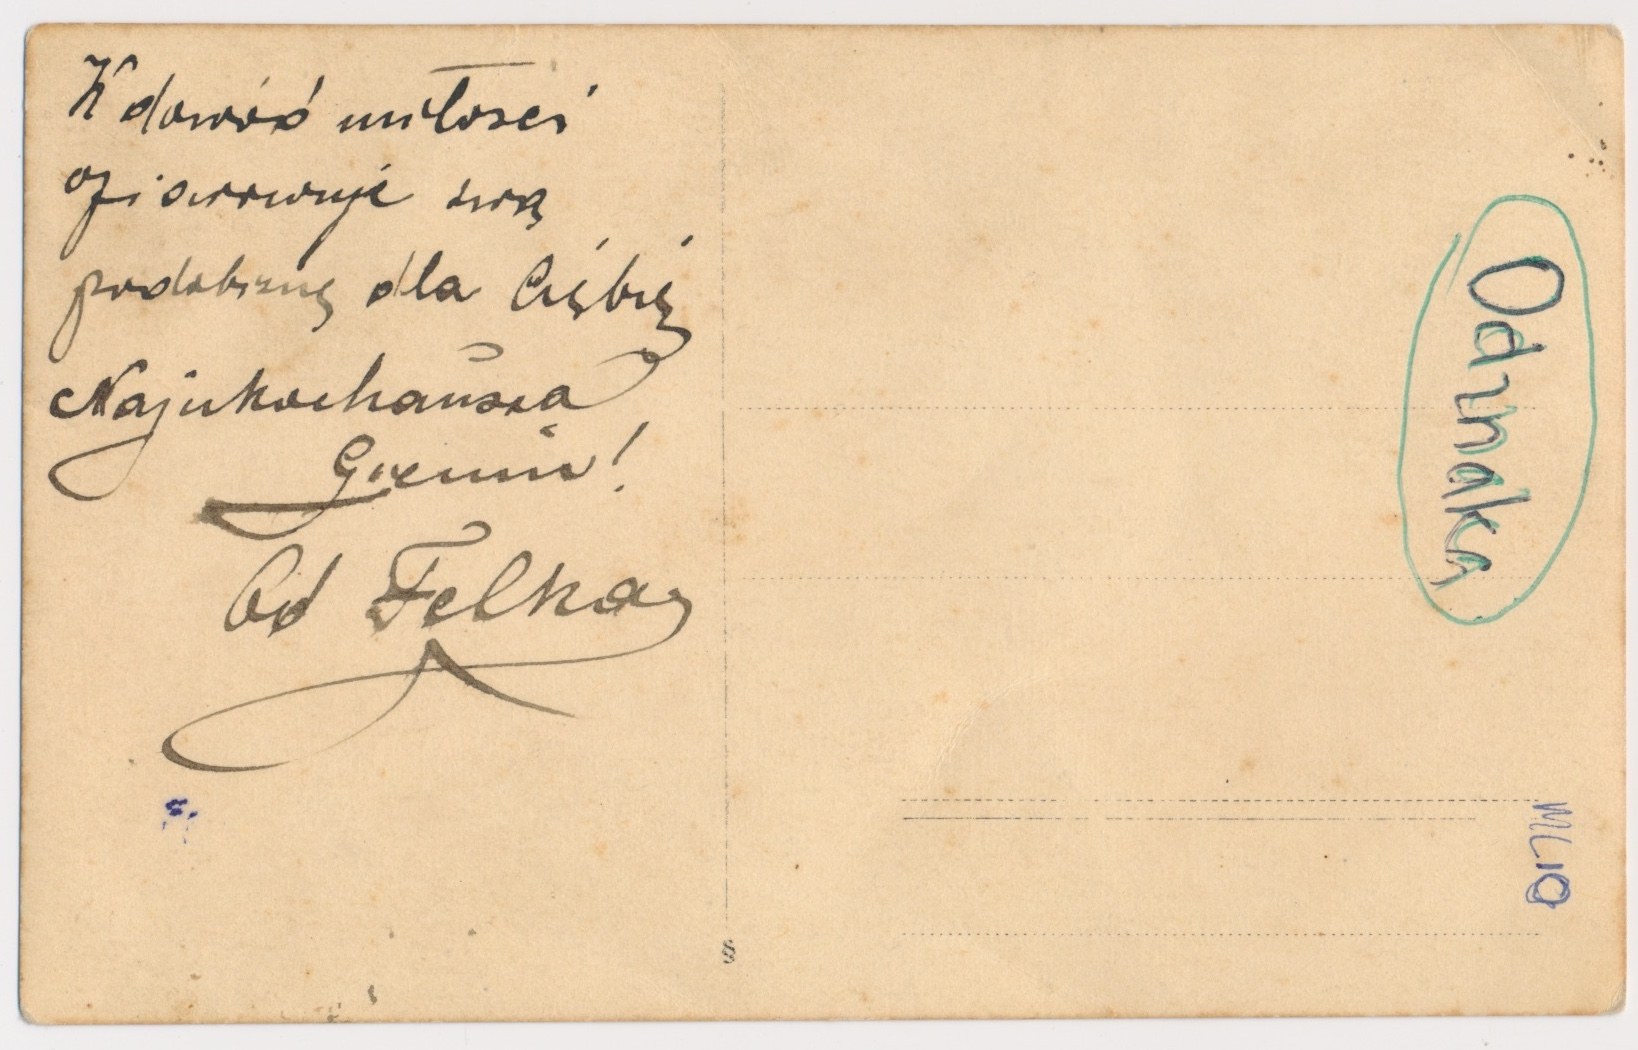 W dowód miłosci
ofiarowuje swą
podobiznę dla Ciębię
Najukochańsza
Gieniu!
Od Felka
Odznaka
ML10
§